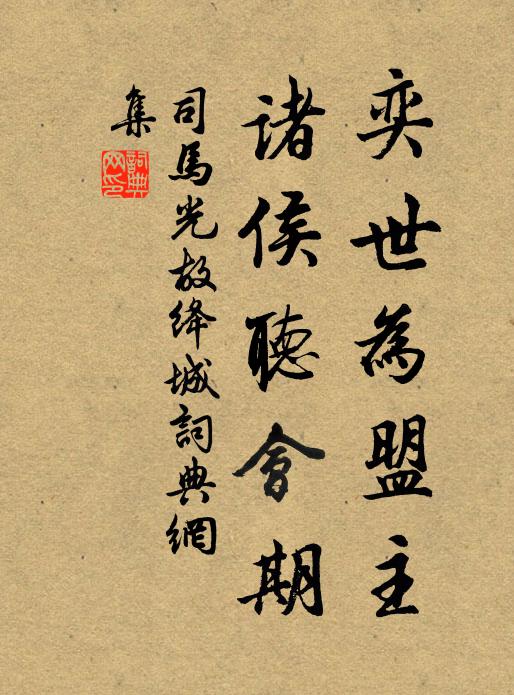 奕世為盟主
諸侯聽會期
司馬光故絳城詞典網
集
詞典
网印